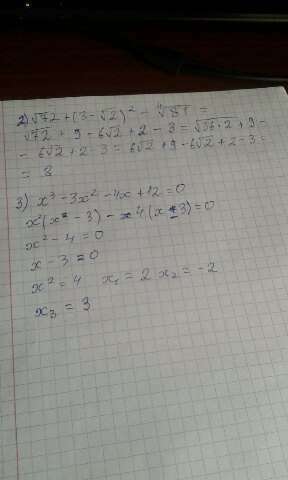 2) √72 + (3 - √2)² - ⁴√81 =
√72 + 9 - 6√2 + 2 - 3 = √36·2 + 9 -
- 6√2 + 2 - 3 = 6√2 + 9 - 6√2 + 2 - 3 =
= 8
3) x³ - 3x² - 4x + 12 = 0
x²(x - 3) - 4(x - 3) = 0
x² - 4 = 0
x - 3 = 0
x² = 4 x₁ = 2 x₂ = -2
x₃ = 3